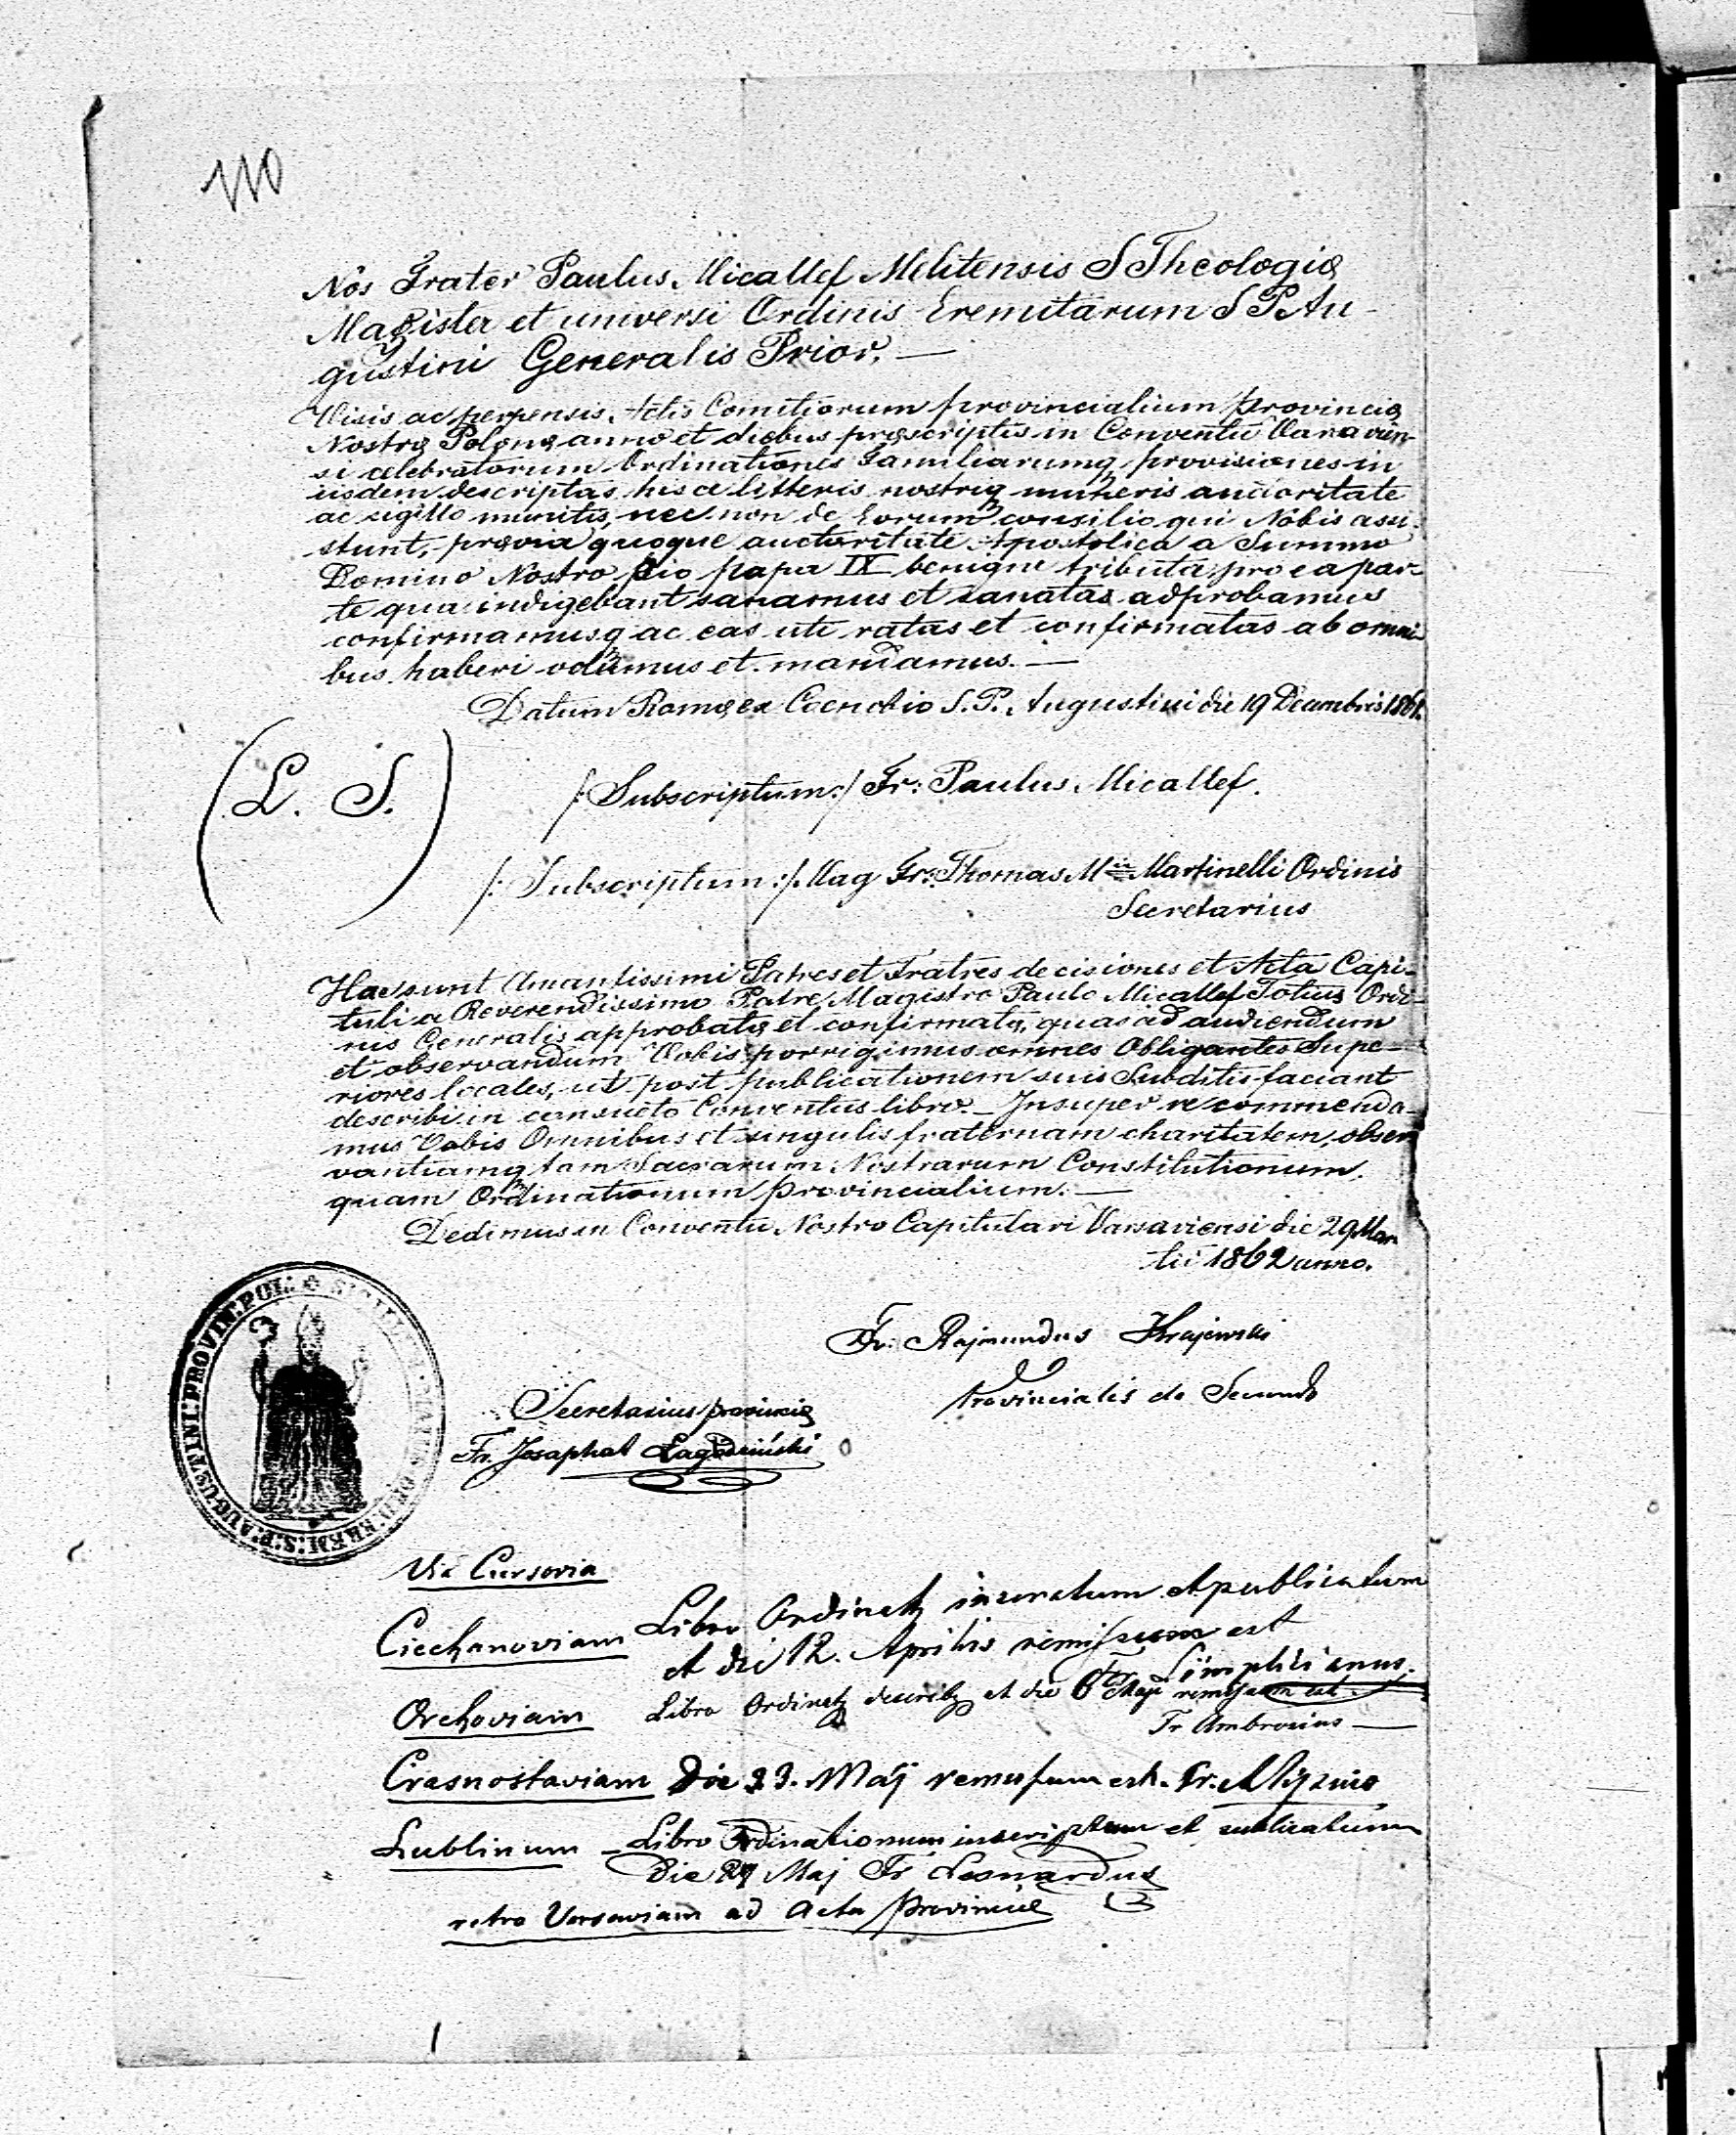 110
Nos Frater Paulus Micallef Melitensis S Theologię
Magister et universi Ordinis Eremitarum S P Au-
gustini Generalis Prior. —
Visis ac perpensis Actis Comitiorum provincialium Provincię
Nostrę Polonę anno et diebus pręscriptis in Conventu Varsavien-
si celebratorum Ordinationes Familiarumq provisiones in
iisdem descriptas hisce litteris nostriq muneris auctoritate
ac sigillo munitis, nec non de Eorum consilio qui Nobis assi-
stunt, prævia quoque auctoritate Apostolica a Summo
Domino Nostro Pio papa IX benigne tributa pro ea par-
te qua indigebant sanamus et sanatas adprobamus
confirmamusq ac eas uti ratas et confirmatas ab omni
bus haberi volumus et mandamus. —
Datum Romę ex Coenobio S. P. Augustini die 19 Decembris 1861.
(L. S.)
/:Subscriptum:/ Fr: Paulus Micallef.
/:Subscriptum:/ Mag Fr: Thomas M Martinelli Ordinis
Secretarius
Hae sunt Amantissimi Patres et Fratres decisiones et Acta Capi-
tuli a Reverendissimo Patre Magistro Paulo Micallef Totius Ordi-
nis Generalis approbatę et confirmatę, quas ad audiendum
et observandum Vobis porrigimus omnes Obligantes Supe-
riores locales, ut post publicationem suis Subditis faciant
describi in consueto Conventus libro. — Insuper recommenda-
mus Vobis Omnibus et singulis fraternam charitatem, obser
vantiamq tam Sacrarum Nostrarum Constitutionum,
quam Ordinationum provincialium. —
Dedimus in Conventu Nostro Capitulari Varsaviensi die 29 Mar
tii 1862 anno.
Fr: Rajmundus Krajewski
Provincialis de Secundo
Secretarius provincię
Fr. Josaphat
ORD. EREM. S. P. AUGUSTINI PROVIN. POL.
Via Cursoria
Ciechanoviam Libro Ordinat insertum et publicatum
et die 12. Aprilis remissum est
Fr Simplicianus.
Orchoviam Libro Ordinat et die 6 Maji remissum est.
Fr Ambrosius —
Crasnostaviam Die 23. Maij remissum est. Fr. Alypius
Lublinum — Libro Ordinationum inscriptum et publicatum
Die Maj Fr Leonardus
retro Varsaviam ad Acta Provincię